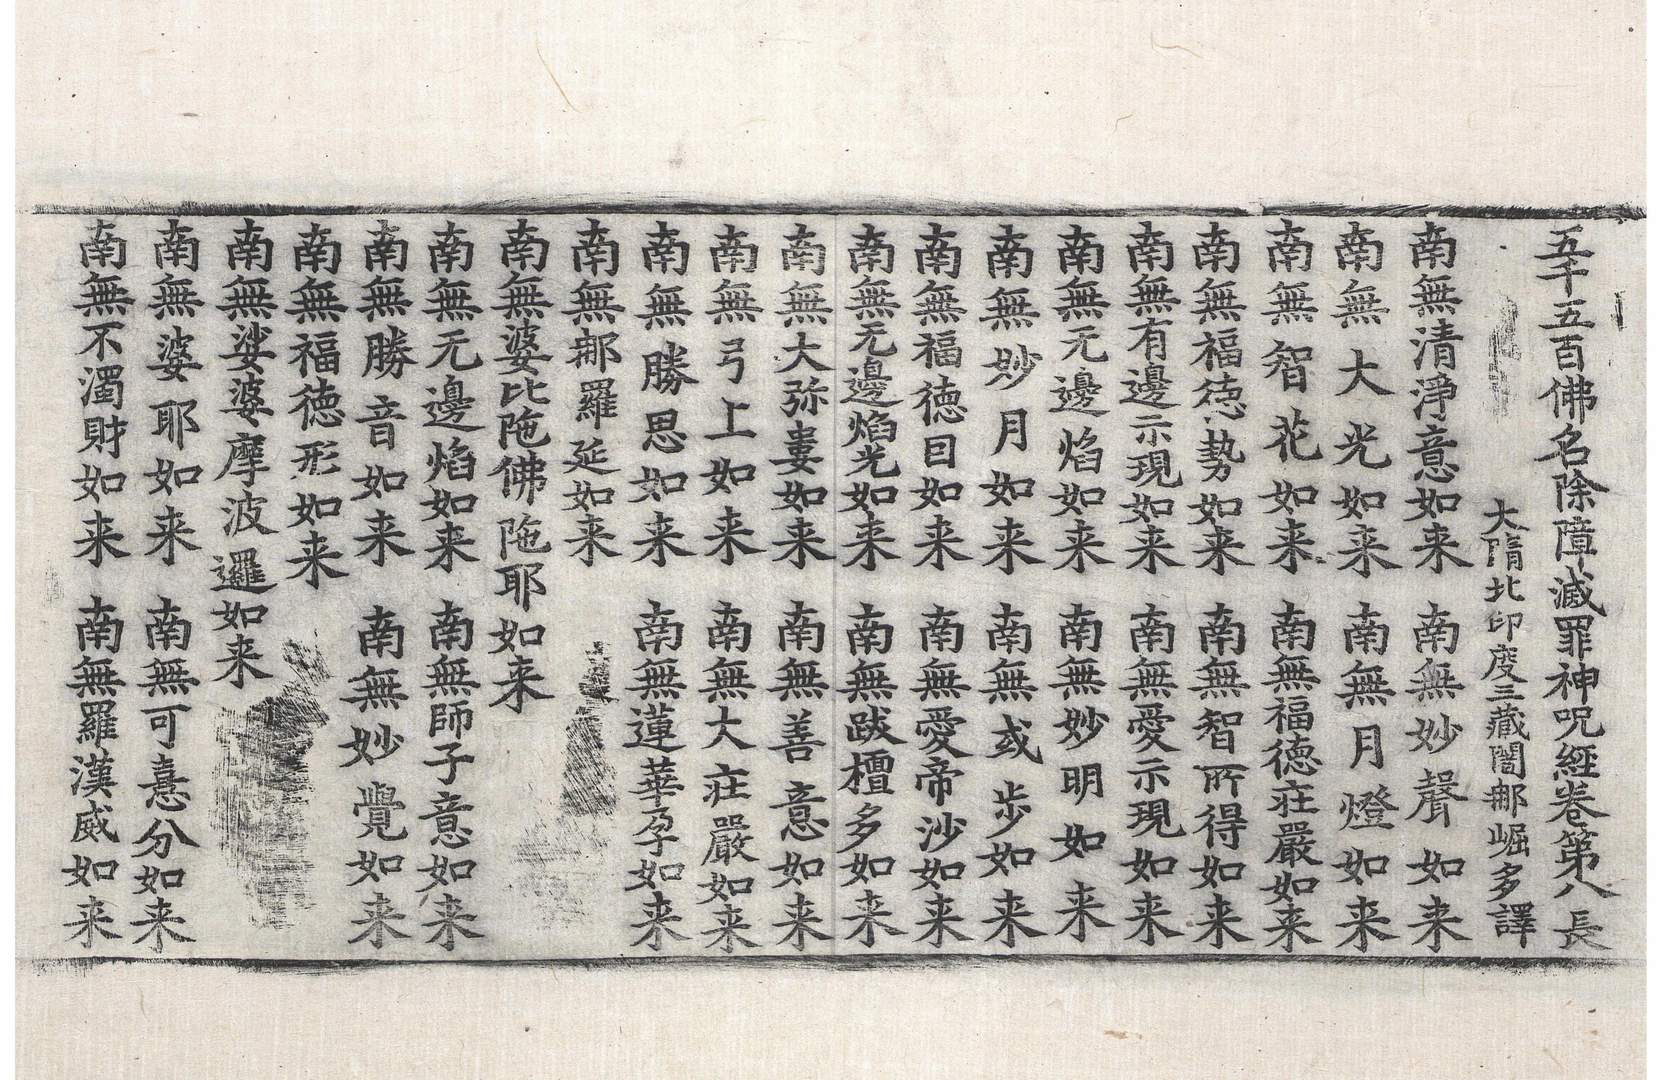 五千五百佛名除障滅罪神呪經卷第八　長
大隋北印度三藏闍那崛多譯
南無清淨意如来　南無妙聲如来
南無大光如来　南無月燈如来
南無智花如来　南無福德莊嚴如来
南無福德勢如来　南無智所得如来
南無有邊示現如来　南無愛示現如来
南無无邊焰如来　南無妙明如来
南無妙月如来　南無或步如来
南無福德目如来　南無愛帝沙如来
南無无邊焰光如来　南無跋檀多如来
南無大弥婁如来　南無善意如来
南無弓上如来　南無大莊嚴如来
南無勝思如来　南無蓮華孕如来
南無那羅延如来
南無婆比陁佛陁耶如来
南無无邊焰如来　南無師子意如来
南無勝音如来　南無妙覺如来
南無福德形如来
南無娑婆摩波邏如来
南無婆耶如来　南無可憙分如来
南無不濁財如来　南無羅漢威如来